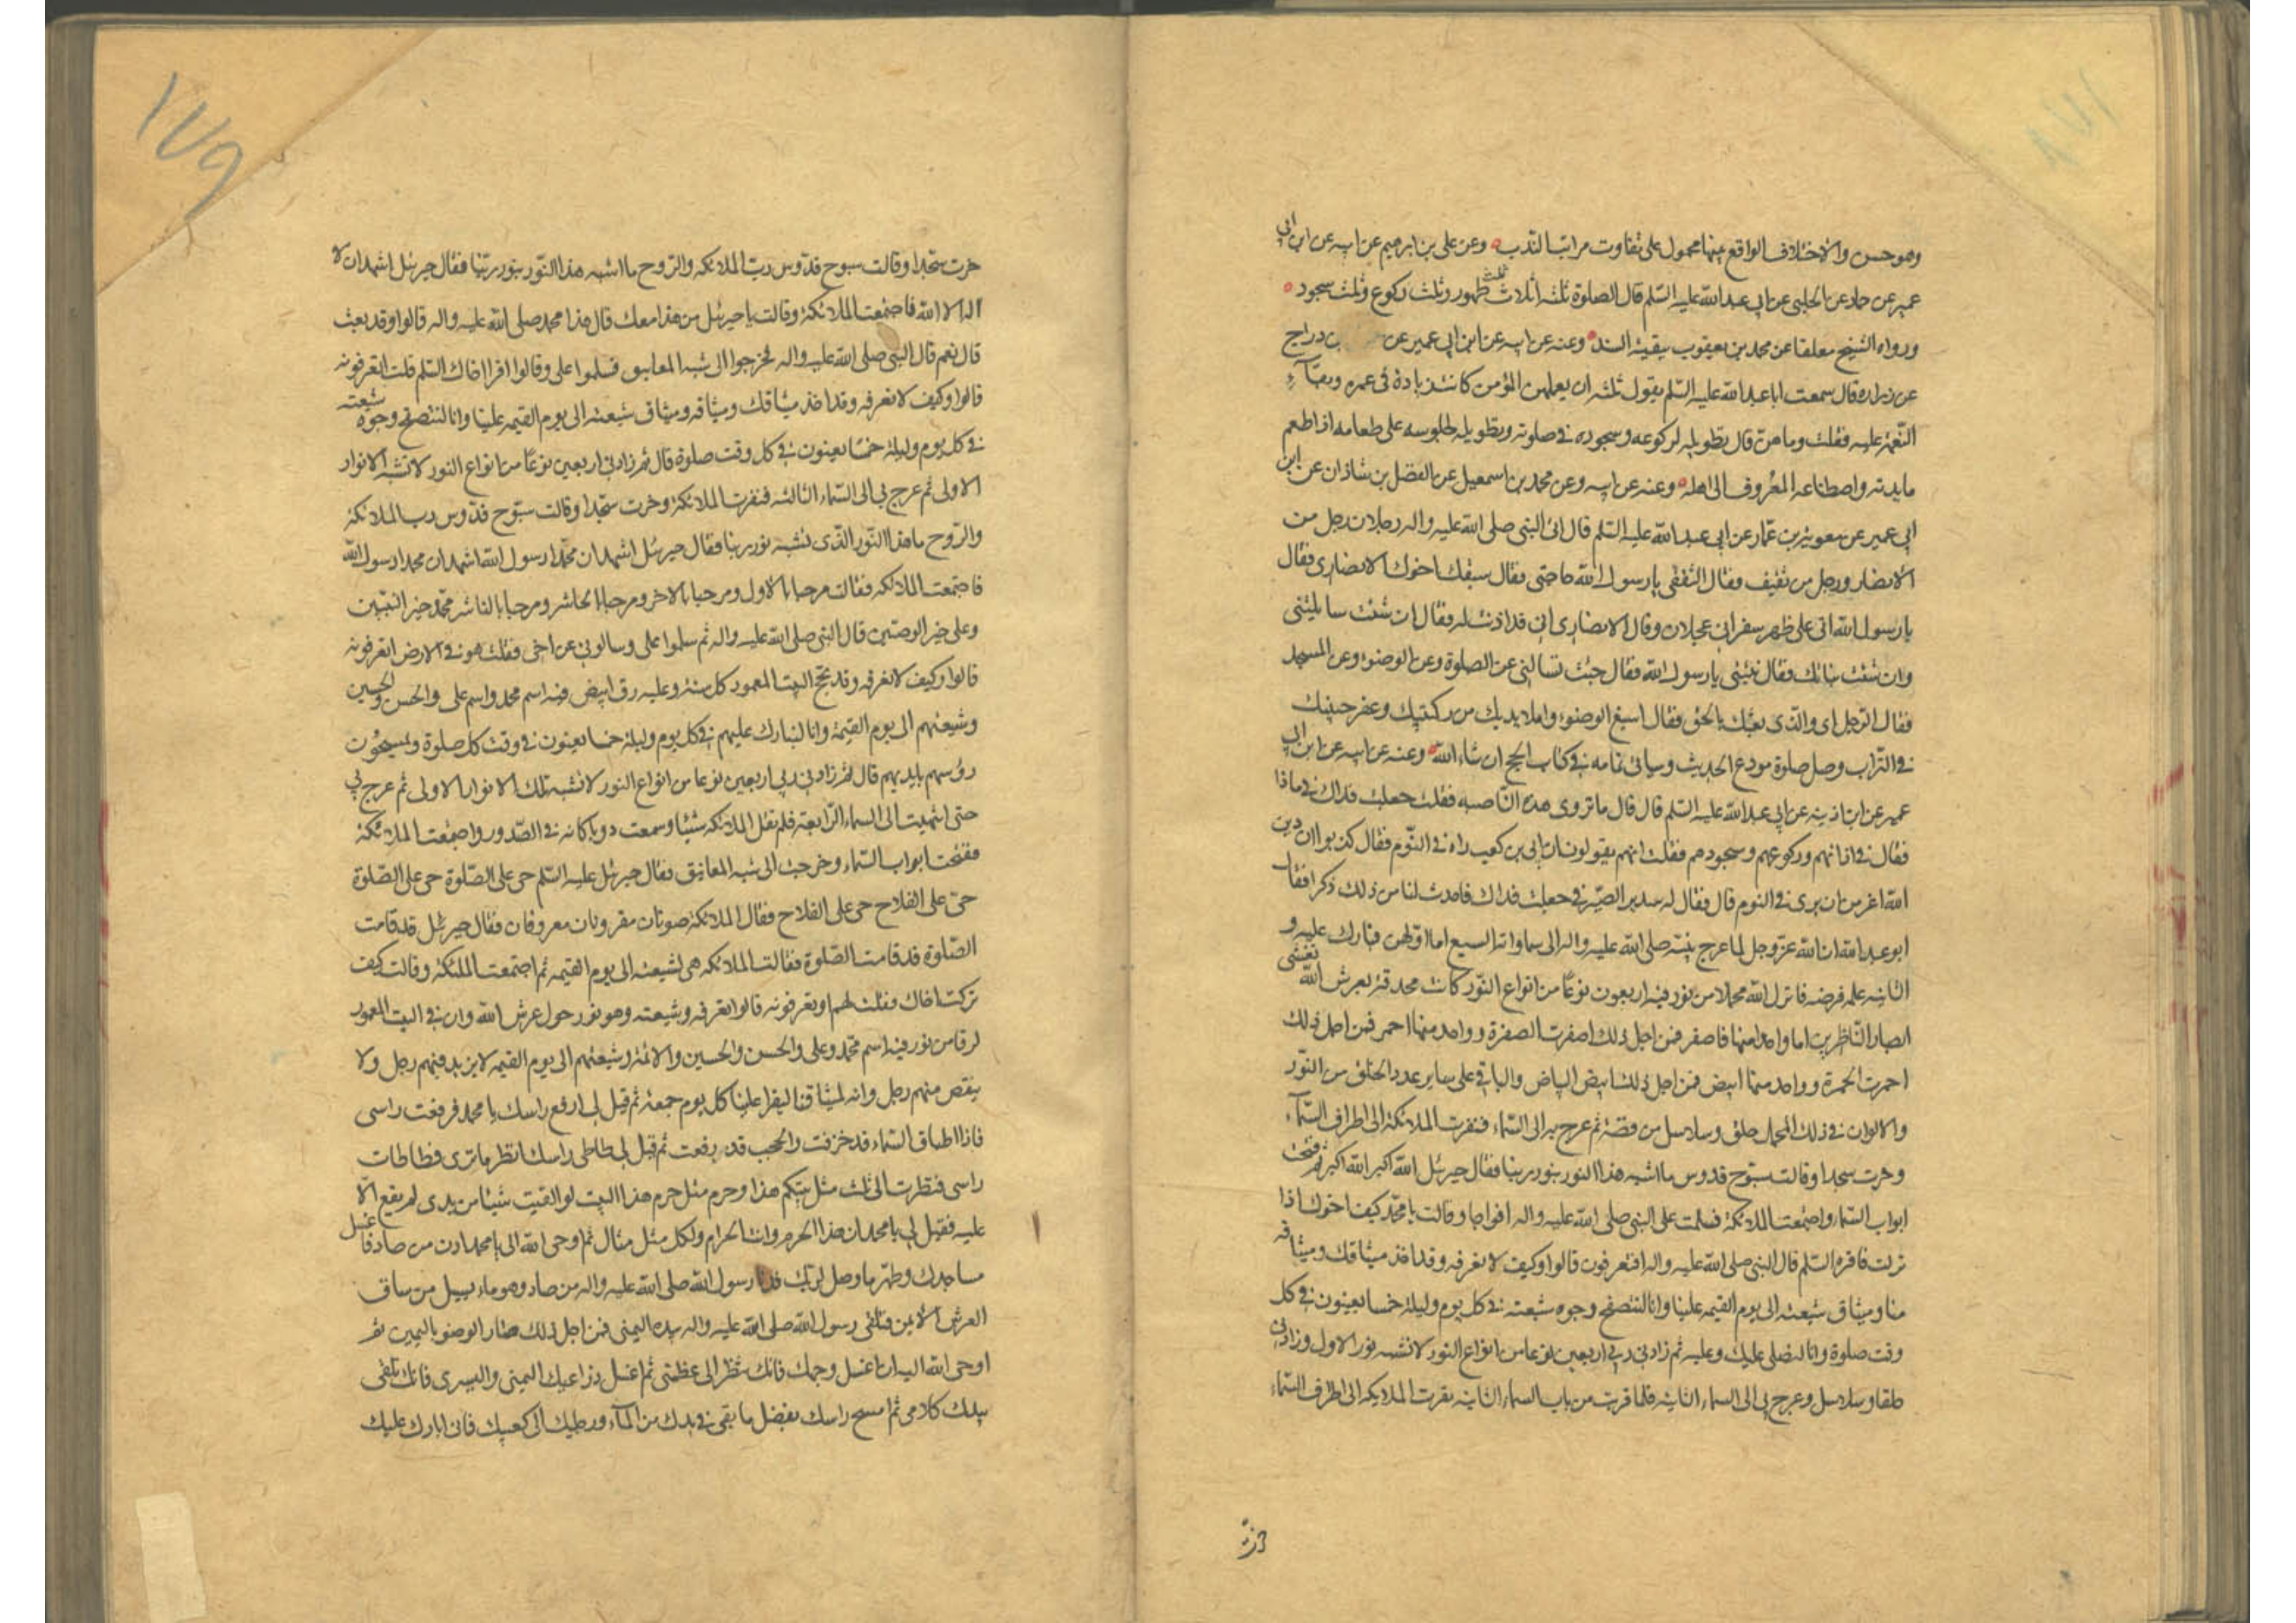 وهو حسن والاختلاف الواقع بينها محمول على تفاوت مراتب الندب وعن على بن ابرهيم عن ابيه عن ابن ابى
عمير عن حماد عن الحلبى عن ابى عبد الله عليه السلم قال الصلوة ثلثه اثلاث ثلث طهور وثلث ركوع وثلث سجود
ورواه الشيخ معلقا عن محمد بن يعقوب ببقية السند وعنه عن ابيه عن ابن ابى عمير عن بن دراج
عن زراره قال سمعت ابا عبد الله عليه السلم يقول ثلثه ان يعلمهن المؤمن كانت زيادة فى عمره وبقآء
النعمة عليه فقلت وما هن قال تطويله لركوعه وسجوده فى صلوته وتطويله لجلوسه على طعامه اذا طعم
مايدته واصطناعه المعروف الى اهله وعنه عن ابيه وعن محمد بن اسمعيل عن الفضل بن شاذان عن ابن
ابى عمير عن معوية بن عمار عن ابى عبد الله عليه السلم قال اتى النبى صلى الله عليه واله رجلان رجل من
الانصار ورجل من ثقيف فقال الثقفى يا رسول الله حاجتى فقال سبقك اخوك الانصارى فقال
يا رسول الله انى على ظهر سفر انى عجلان وقال الانصارى انى قد اذنت له فقال ان شئت سايلتنى
وان شئت نباتك فقال نبئنى يا رسول الله فقال جئت تسالنى عن الصلوة وعن الوضوء وعن المسجد
فقال الرجل اى والذى بعثك بالحق فقال اسبغ الوضوء واملا يديك من ركبتيك وعفر جبينك
فى التراب وصل صلوة مودع الحديث وسياتى تمامه فى كتاب الحج ان شاء الله وعنه عن ابيه عن ابن ابى
عمير عن ابن اذينه عن ابى عبد الله عليه السلم قال قال ما تروى هذه الناصبه فقلت جعلت فداك فى ماذا
فقال فى اذانهم وركوعهم وسجودهم فقلت انهم يقولون ان ابى بن كعب راه فى النوم فقال كذبوا ان دين
الله اعز من ان يرى فى النوم قال فقال له سدير الصيرفى جعلت فداك فاحدث لنا من ذلك ذكرا فقال
ابو عبد الله ان الله عز وجل لما عرج بنبيه صلى الله عليه واله الى سماواته السبع اما اولهن فبارك عليه و
الثانيه علمه فرضه فانزل الله محملا من نور فيه اربعون نوعا من انواع النور كانت محدقة بعرش الله تغشى
ابصار الناظرين اما واحد منها فاصفر فمن اجل ذلك اصفرت الصفرة وواحد منها احمر فمن اجل ذلك
احمرت الحمرة وواحد منها ابيض فمن اجل ذلك ابيض البياض والباقى على ساير عدد الخلق من النور
والالوان فى ذلك المحمل حلق وسلاسل من فضة ثم عرج به الى السماء فنفرت الملائكة الى اطراف السمآء
وخرت سجدا وقالت سبوح قدوس ما اشبه هذا النور بنور ربنا فقال جبرئل الله اكبر الله اكبر ثم فتحت
ابواب السماء واجتمعت الملائكة فسلمت على النبى صلى الله عليه واله افواجا وقالت يا محمد كيف اخوك اذا
نزلت فاقره السلم قال النبى صلى الله عليه واله افتعرفونه قالوا وكيف لا نعرفه وقد اخذ ميثاقك وميثاقه
منا وميثاق شيعته الى يوم القيمه علينا وانا لنتصفح وجوه شيعته فى كل يوم وليلة خمسا يعنون فى كل
وقت صلوة وانا لنصلى عليك وعليه ثم زادنى ربى اربعين نوعا من انواع النور لا تشبه نور الاول وزادنى
حلقا وسلاسل وعرج بى الى السماء الثانيه فلما قربت من باب السماء الثانيه نفرت الملايكه الى اطراف السماء
خرت
١٧٩
خرت سجدا وقالت سبوح قدوس رب الملائكه والروح ما اشبه هذا النور بنور ربنا فقال جبرئل اشهد ان لا
اله الا الله فاجتمعت الملائكة وقالت يا جبرئل من هذا معك قال هذا محمد صلى الله عليه واله قالوا وقد بعث
قال نعم قال النبى صلى الله عليه واله فخرجوا الى شبه المعانيق فسلموا على وقالوا اقرا اخاك السلم قلت اتعرفونه
قالوا وكيف لا نعرفه وقد اخذ ميثاقك وميثاقه وميثاق شيعته الى يوم القيمه علينا وانا لنتصفح وجوه شيعته
فى كل يوم وليلة خمسا يعنون فى كل وقت صلوة قال ثم زادنى اربعين نوعا من انواع النور لا تشبه الانوار
الاولى ثم عرج بى الى السماء الثالثه فنفرت الملائكة وخرت سجدا وقالت سبوح قدوس رب الملائكة
والروح ما هذا النور الذى يشبه نور ربنا فقال جبرئل اشهد ان محمدا رسول الله اشهد ان محمدا رسول الله
فاجتمعت الملائكه فقالت مرحبا بالاول ومرحبا بالاخر ومرحبا بالحاشر ومرحبا بالناشر محمد خير النبيين
وعلى خير الوصيين قال النبى صلى الله عليه واله ثم سلموا على وسالونى عن اخى فقلت هو فى الارض اتعرفونه
قالوا وكيف لا نعرفه وقد نحج البيت المعمور كل سنة وعليه رق ابيض فيه اسم محمد واسم على والحسن والحسين
وشيعتهم الى يوم القيمة وانا لنبارك عليهم فى كل يوم وليلة خمسا يعنون فى وقت كل صلوة ويمسحون
رؤسهم بايديهم قال ثم زادنى ربى اربعين نوعا من انواع النور لا تشبه تلك الانوار الاولى ثم عرج بى
حتى انتهيت الى السماء الرابعة فلم تقل الملائكه شيئا وسمعت دويا كانه فى الصدور واجتمعت الملائكة
ففتحت ابواب السماء وخرجت الى شبه المعانيق فقال جبرئل عليه السلم حى على الصلوة حى على الصلوة
حى على الفلاح حى على الفلاح فقال الملائكة صوتان مقرونان معروفان فقال جبرئل قد قامت
الصلوة قد قامت الصلوة فقالت الملائكه هى لشيعته الى يوم القيمه ثم اجتمعت الملئكة وقالت كيف
تركت اخاك فقلت لهم او تعرفونه قالوا نعرفه وشيعته وهو نور حول عرش الله وان فى البيت المعمور
لرقا من نور فيه اسم محمد وعلى والحسن والحسين والائمة وشيعتهم الى يوم القيمه لا يزيد فيهم رجل ولا
ينقص منهم رجل وانه لميثاقنا ليقرا علينا كل يوم جمعة ثم قيل لى ارفع راسك يا محمد فرفعت راسى
فاذا اطباق السماء قد خرقت والحجب قد رفعت ثم قيل لى طاطئ راسك انظر ما ترى فطاطات
راسى فنظرت الى بيت مثل بيتكم هذا وحرم مثل حرم هذا البيت لو القيت شيئا من يدى لم يقع الا
عليه فقيل لى يا محمد ان هذا الحرم وانت الحرام ولكل مثل مثال ثم اوحى الله الى يا محمد ادن من صاد فاغسل
مساجدك وطهرها وصل لربك فدنا رسول الله صلى الله عليه واله من صاد وهو ماء يسيل من ساق
العرش الايمن فتلقى رسول الله صلى الله عليه واله بيده اليمنى فمن اجل ذلك صار الوضو باليمين ثم
اوحى الله اليه ان اغسل وجهك فانك تنظر الى عظمتى ثم اغسل ذراعيك اليمنى واليسرى فانك تلقى
بيدك كلامى ثم امسح راسك بفضل ما بقى فى يدك من المآء ورجليك الى كعبيك فانى ابارك عليك